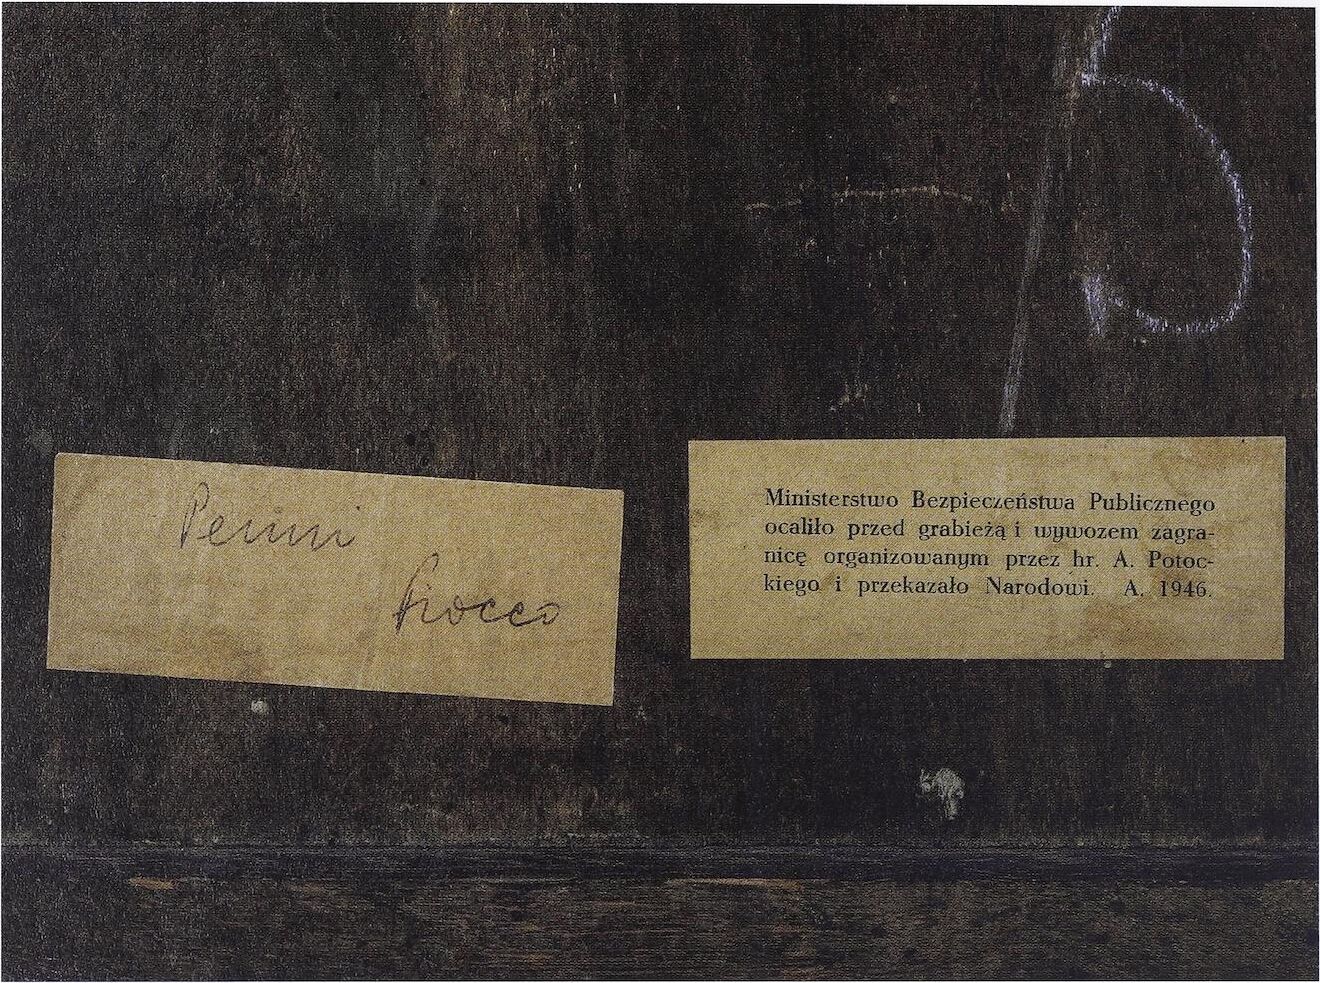 Penni
Rocco
Ministerstwo Bezpieczeństwa Publicznego
ocaliło przed grabieżą i wywozem zagra-
nicę organizowanym przez hr. A. Potoc-
kiego i przekazało Narodowi. A. 1946.